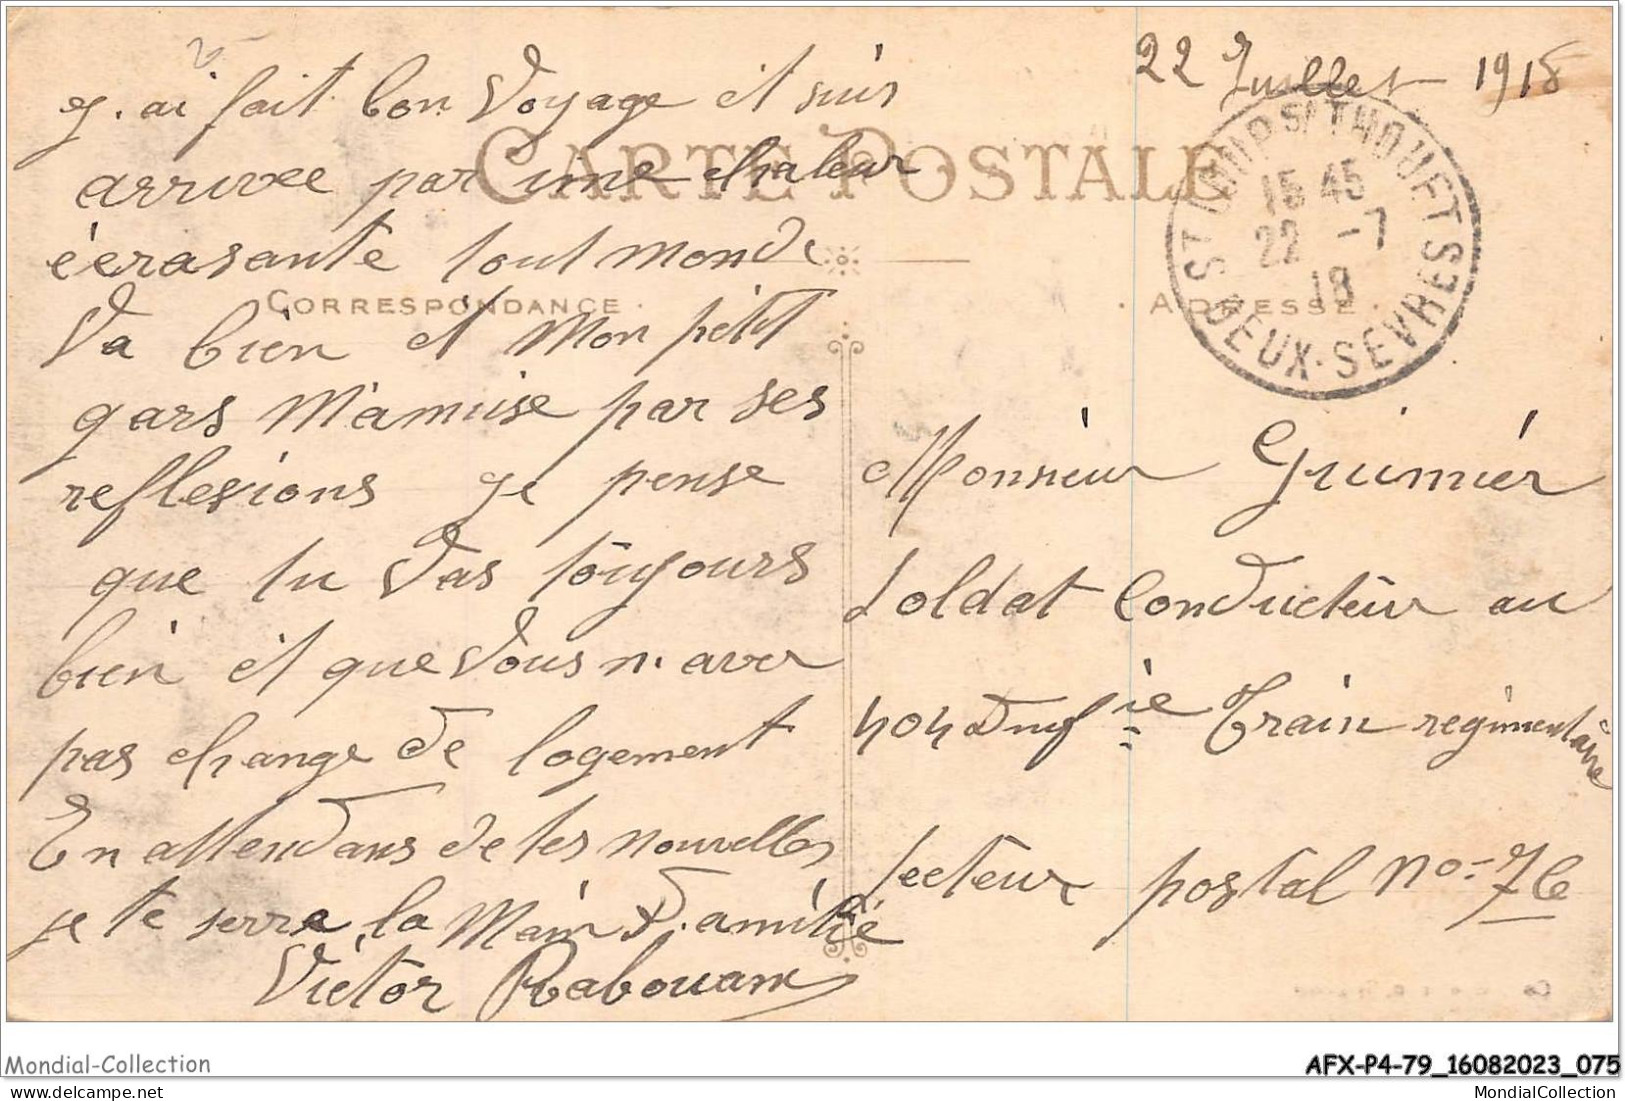 22 Juillet 1918
CARTE POSTALE
CORRESPONDANCE
ADRESSE
ST LOUP S/ THOUET
15 45
22 -7
18
DEUX-SEVRES
J. ai fait bon Voyage et suis
arrivee par une chaleur
écrasante tout monde
Va bien et Mon petit
gars M'amuse par ses
reflexions je pense
que tu Vas toujours
bien et que Vous n. aver
pas change de logement
En attendans de tes nouvelles
je te serre la Main D. amitié
Victor Rabouam
Monsieur Guimier
Soldat Conducteur au
404 d'Inf ie Train regimentaire
Secteur postal No = 76
Mondial-Collection
AFX-P4-79_16082023_075
MondialCollection